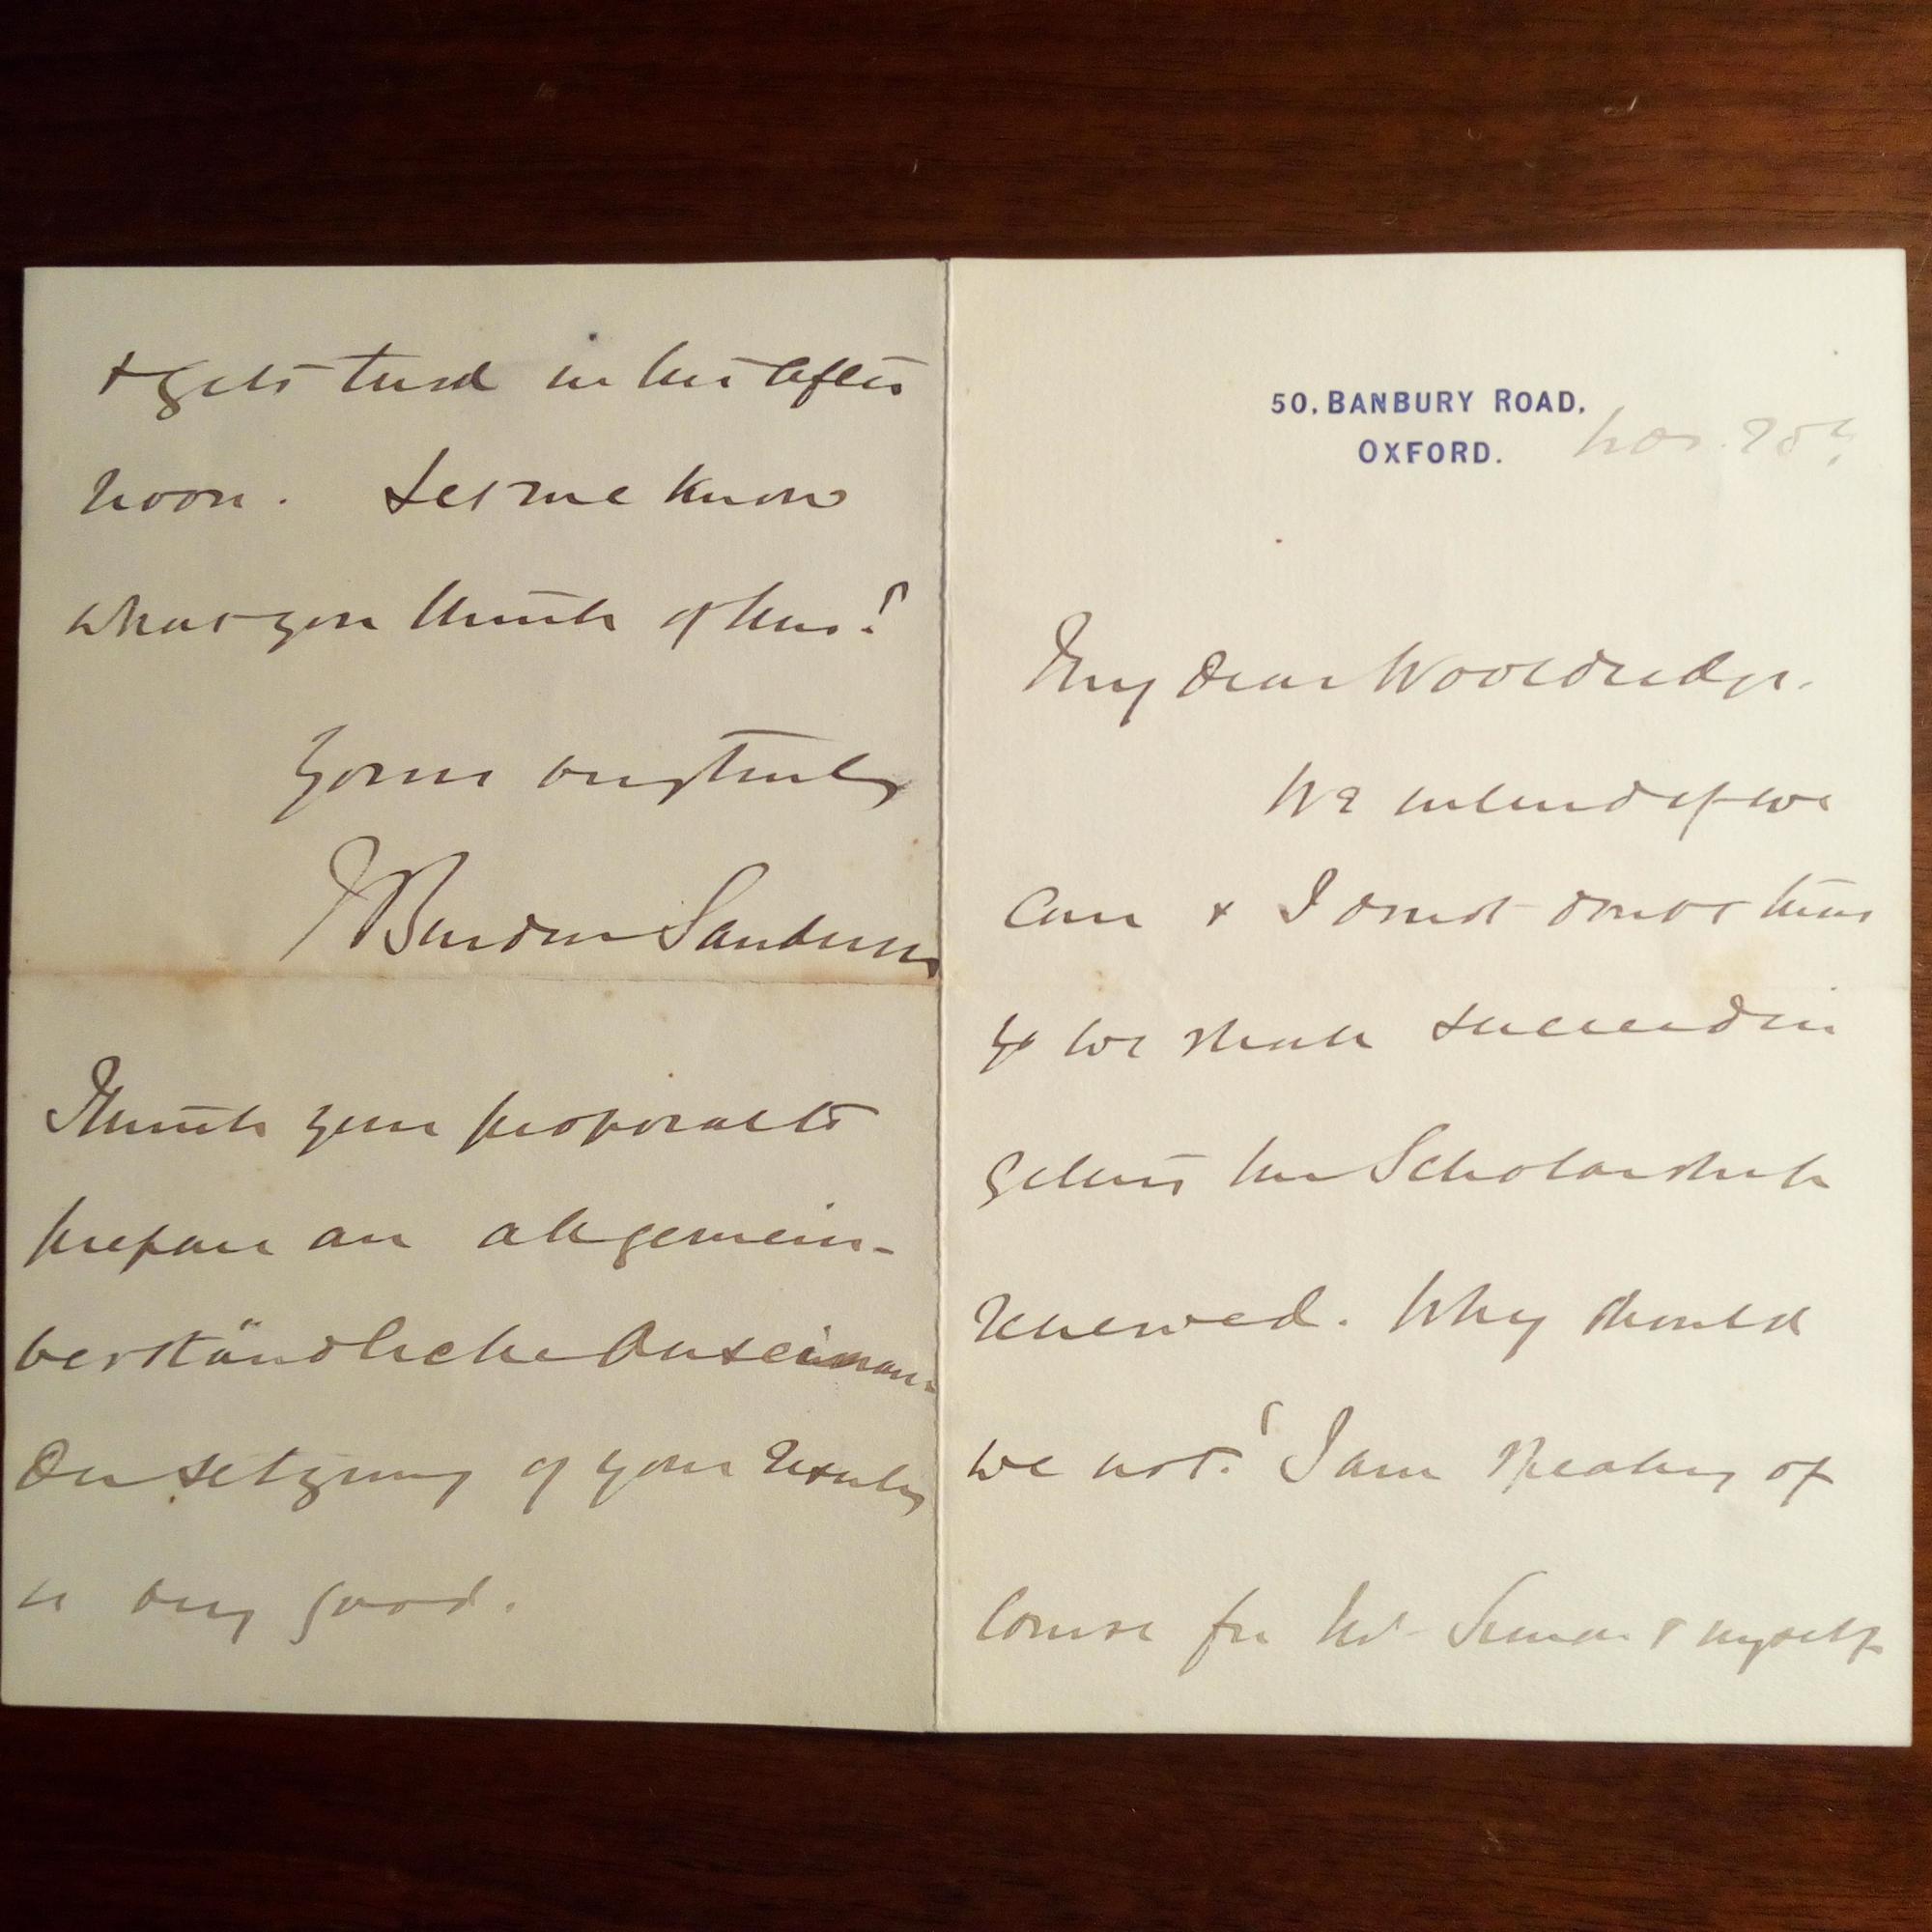 50, BANBURY ROAD,
OXFORD. Nov. 25th
My dear Wooldridge.
We intend if we
can & I do not doubt
yt we shall succeed in
getting the Scholarship
renewed. Why should
we not? I am speaking of
course for Mr Simon & myself
& gets tired in the after
noon. Let me know
what you think of this?
Yours very truly
J Burdon Sanderson
I think your proposal to
prepare an allgemein-
verständliche Auseinan-
dersetzung of your results
is very good.